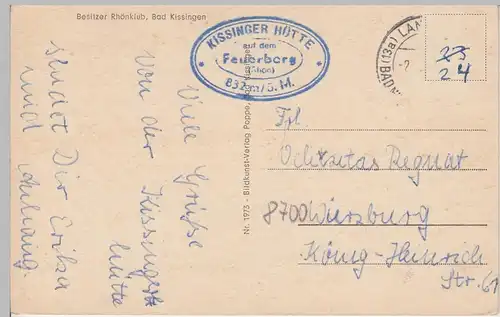 Besitzer Rhönklub, Bad Kissingen
KISSINGER HÜTTE
auf dem
Feuerberg
(Rhön)
832 m/ü. M.
Viele Grüße
von der Kissinger
Hütte
sendet Dir Erika
und
Nr. 1973 - Bildkunst-Verlag Poppe,
(13a)
BAD
23
24
Frl.
Regnat
8700 Würzburg
König-Heinrich
Str. 61